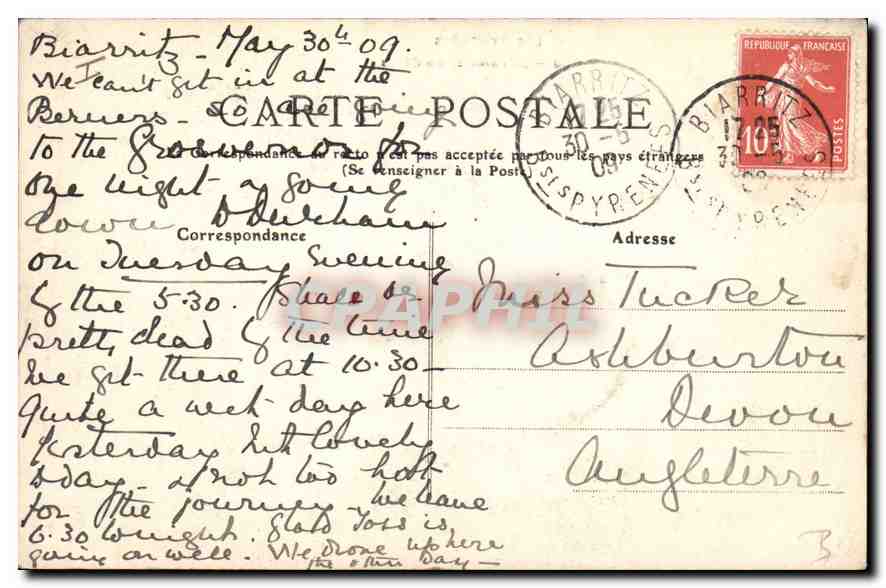 Biarritz May 30th 09.
We can't get in at the
Berners so are going
CARTE POSTALE
to the Grosvenor for
La Correspondance au recto n'est pas acceptée par tous les pays étrangers
(Se renseigner à la Poste)
one night & going
down
Correspondance
on Tuesday Evening
by the 5.30. Shall be
pretty dead by the time
we get there at 10.30
Quite a wet day here
yesterday but lovely
today - & not too hot
for the journey we leave
6.30 tonight. Glad Joss is
going on well. We drove up here
the other Day
REPUBLIQUE FRANÇAISE
10
POSTES
BIARRITZ
17 25
30 - 5
09
BSES PYRENEES
BIARRITZ
17 25
30 - 5
09
BSES PYRENEES
Adresse
Miss Tucker
Ashburton
Devon
Angleterre
CPAPHIL